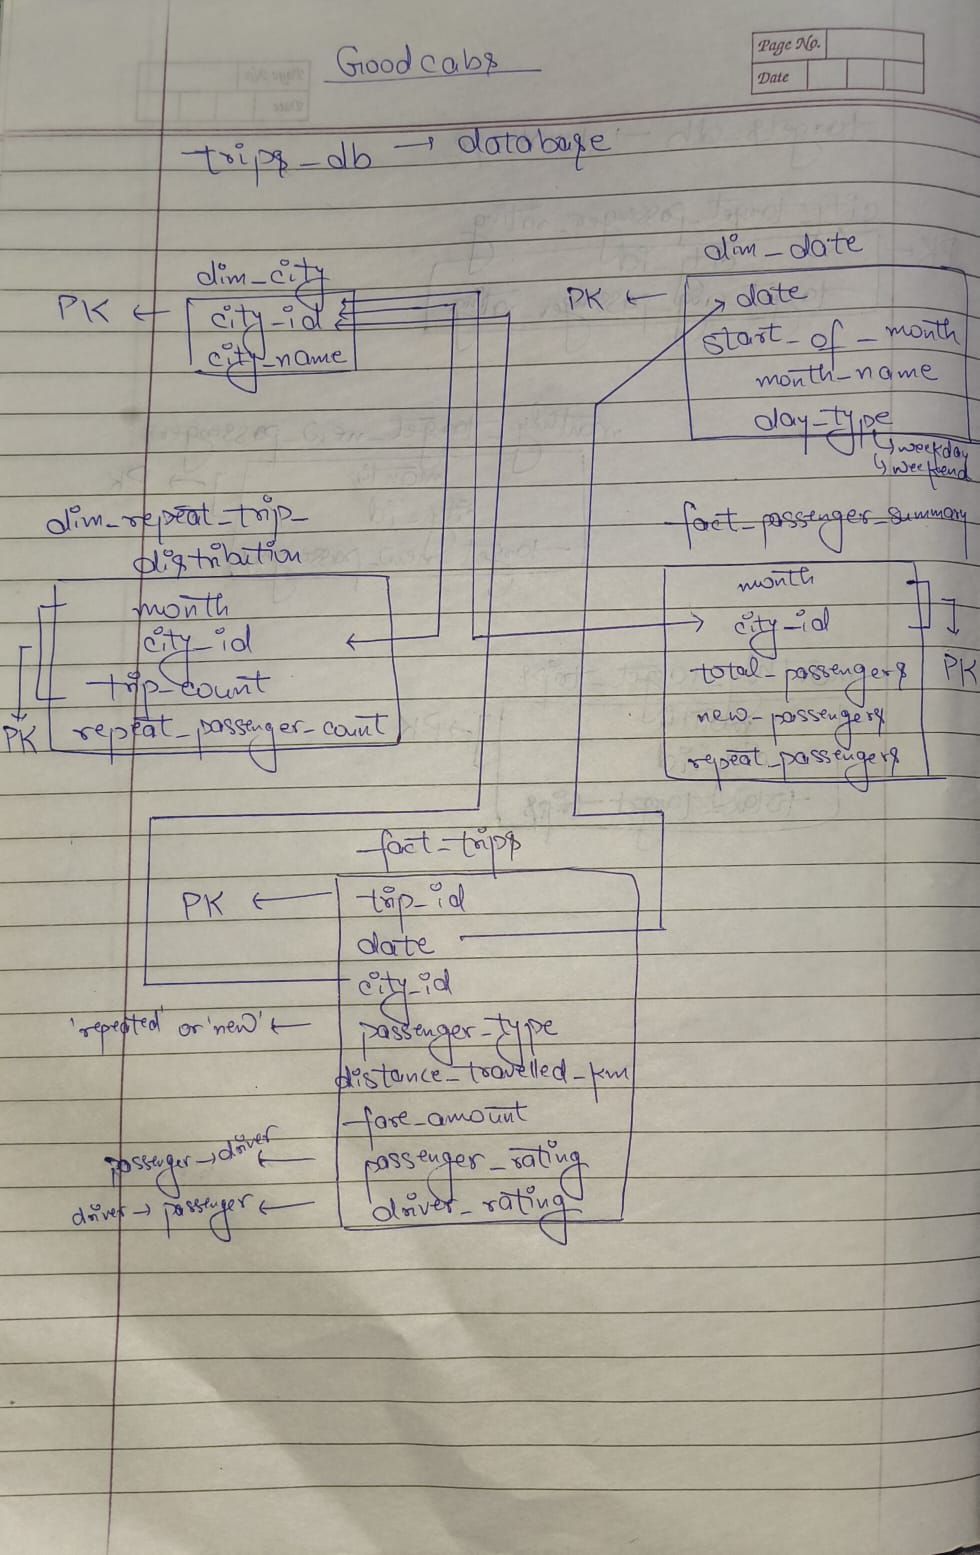 Goodcabs
Page No.
Date
trips_db → database
dim_city
PK ← city_id
city_name
dim_date
PK ← date
start_of_month
month_name
day_type
↳ weekday
↳ weekend
dim_repeat_trip_
distribution
month
city_id
trip_count
repeat_passenger_count
PK
fact_passenger_summary
month
city_id
total_passengers
new_passengers
repeat_passengers
PK
fact_trips
PK ← trip_id
date
city_id
'repeated' or 'new' ← passenger_type
distance_travelled_km
fare_amount
passenger → driver ← passenger_rating
driver → passenger ← driver_rating